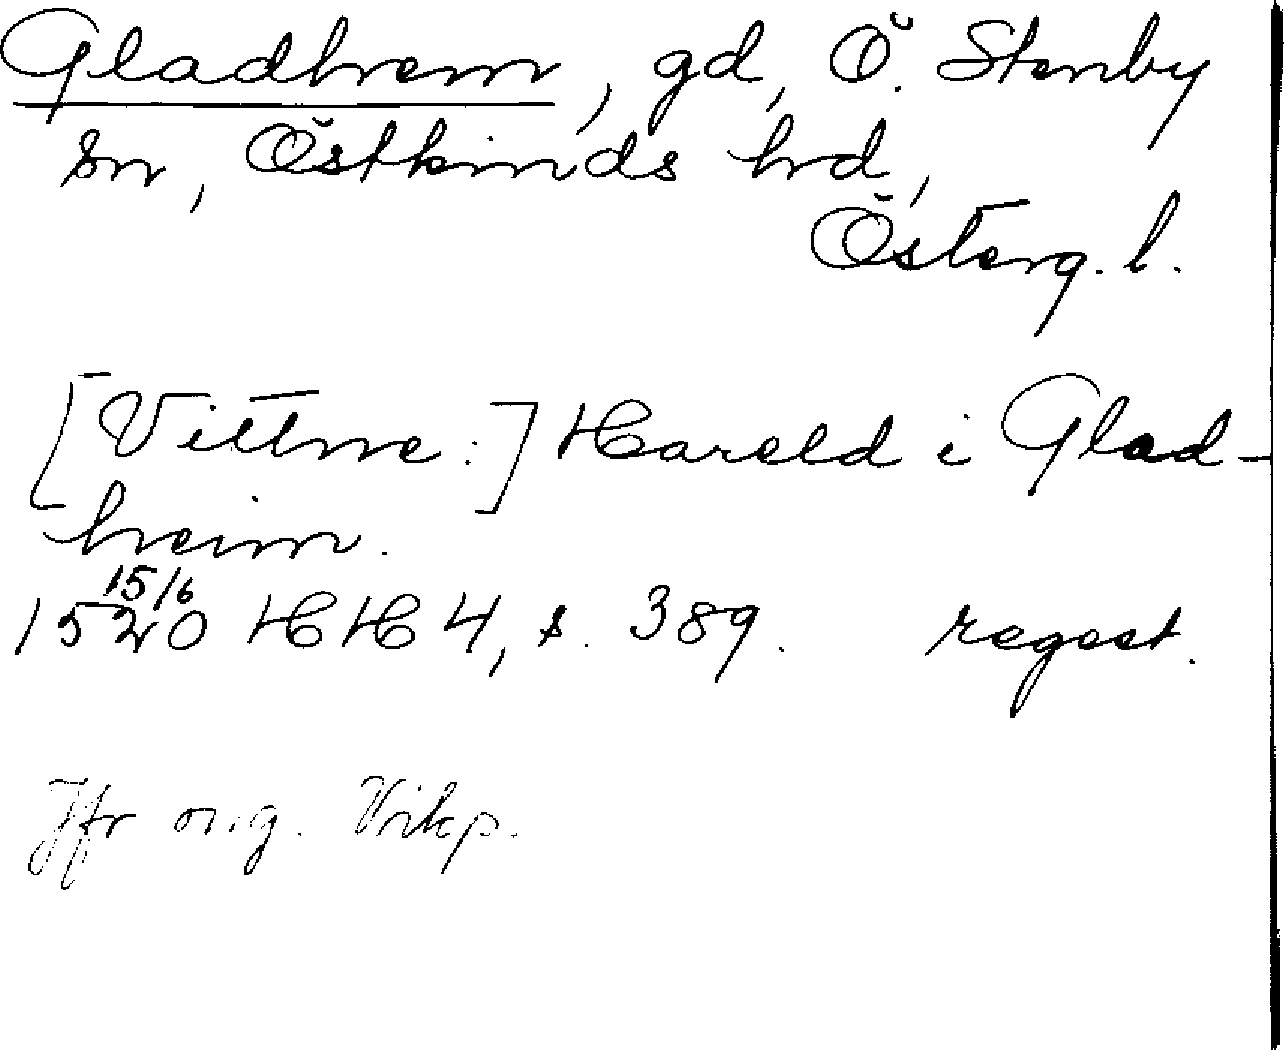 Gladhem, gd, Ö. Stenby
sn, Östkinds hrd,
Österg. l.
[Vittne:] Hareld i Glad-
heim.
15/6
1520 HH 4, s. 389. regest.
Jfr orig. Vrkp.